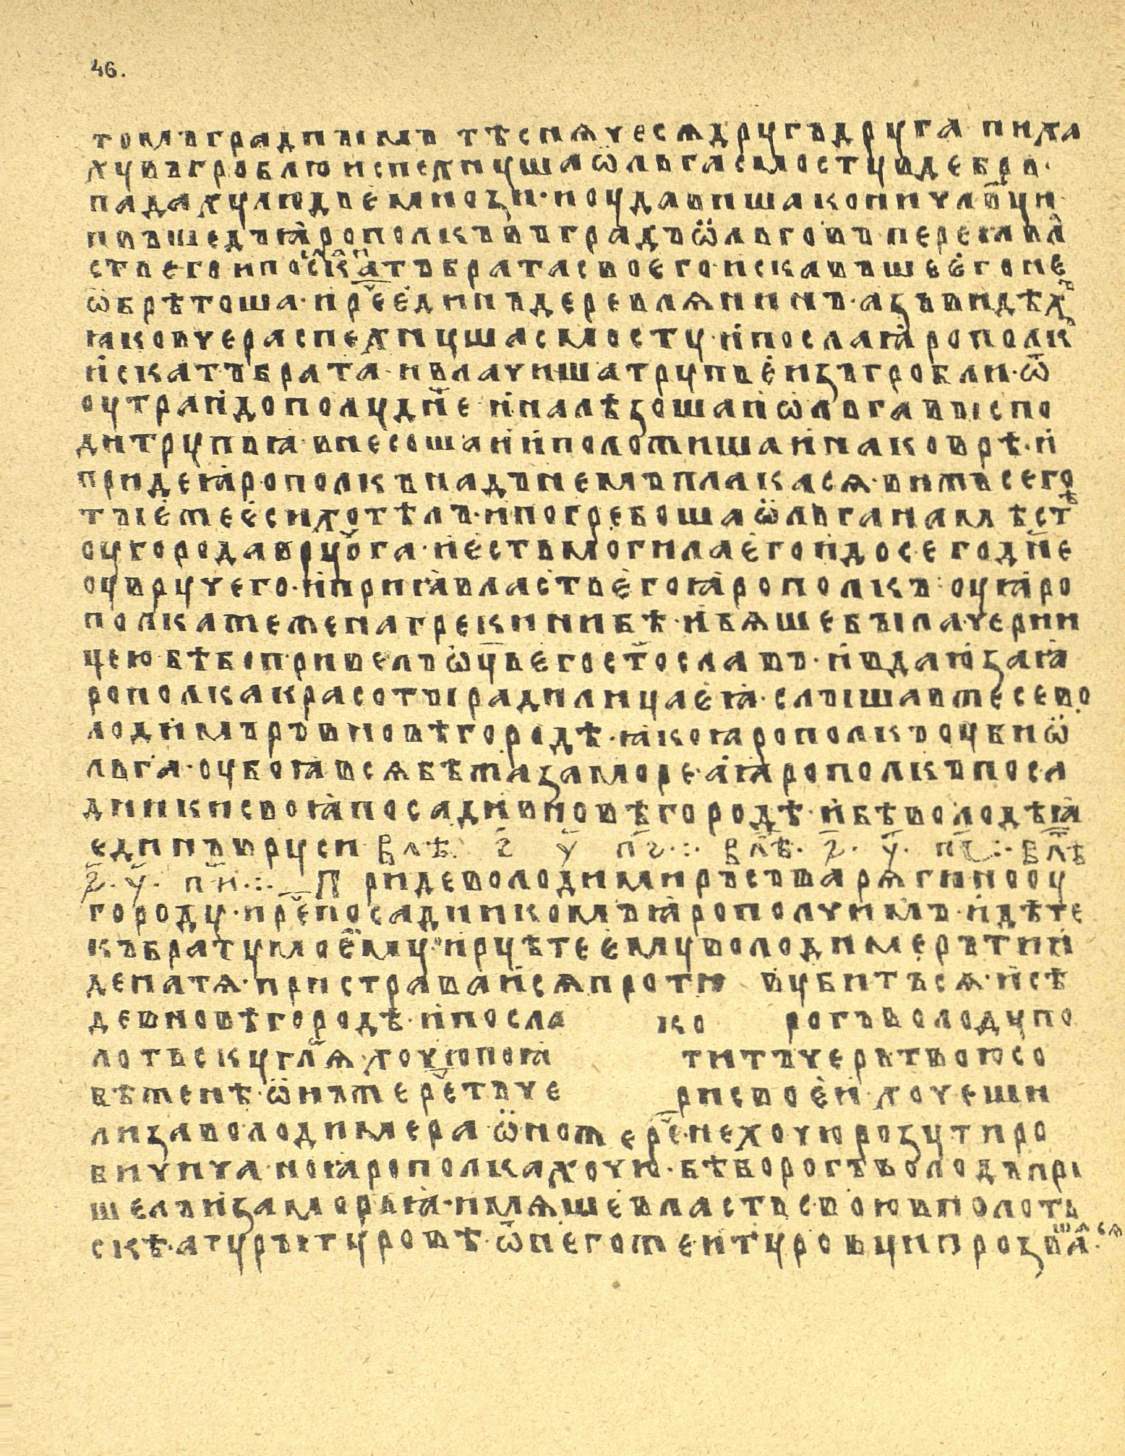 46.
томъградънымъ тѣснячесѧдругъдруга пиха
хуꙋвъгроблю испехнушаѡльгасмостувдебрь·
падахулюдьемнози·иоудавишакониичл҃вци·
ившедъꙗрополкъвъградъѡльговъ перееꙗвлⷭ
стьегоипослаискатъбратасвоего·искавъшеегоне
ѡбрѣтоша·ирⷱ҇еединъдеревлѧнинъ·азъвидѣхъ
ꙗковчераспехнушасмосту·ипослаꙗрополкъ
искатъбрата·ивлачишатрупьеизъгробли·ѿ
оутраидополудн҃е иналѣзошаиѡльгавыспо
дитрупьꙗ·внесошаииположишаинаковрѣ·и
придеꙗрополкънадънемъплакасѧ·вижьсего
тыемеесихотѣлъ·ипогребошаѡльганамѣстѣ
оугородавручога·иестьмогилаегоидосегодн҃е
оувручего·иприꙗвластьегоꙗрополкъ оуꙗро
полкажеженагрекинибѣ·ибѧшебылачерни
цею·бѣбопривелъѡц҃ьегост҃ославъ·ивдаюзаꙗ
рополкакрасотырадилицаеꙗ·слышавжесево
лодимъръвновѣгородѣ·ꙗкоꙗрополкъоубиѡ
льга·оубоꙗвсѧбѣжазаморе·аꙗрополкъпоса
дникисвоꙗпосадивновѣгородѣ·ибѣволодѣꙗ
единъврусивлѣ· ҂ѕ҃ у҃ пѕ҃·:· влѣ·҂ѕ҃·у҃·пз҃·:·влѣ
҂ѕ҃·у҃·пи҃·:· Придеволодимиръсъварѧгиноо у
городу·ирⷱ҇епосадникомъꙗрополчимъ·идѣте
къбратумоему·ирцѣтеемуволодимеръти и
детнатѧ·пристраваисѧпроти вубитъсѧ·исѣ
девновѣгородѣ·ипосла ко рогъволодупо
лотьскугл҃ѧ·хочюпоꙗ титъчерьтьоюсо
бѣженѣ·ѡнъжерⷱ҇етъче рисвоеи·хочешили
лизаволодимера·ѡнож ерⷱ҇е·нехочюрозутиро
бичича·ноꙗрополкахочю·бѣборогъволодъпри
шелъизаморьꙗ·имѧшевластьсвоювполоть
скѣ·атурытуровѣ·ѿнегожеитуровципрозвашасѧ